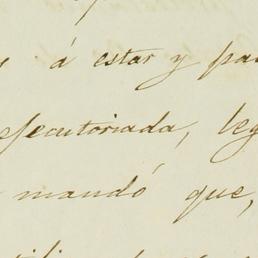 á estar y pa
ejecutoriada, leg
mandó que,